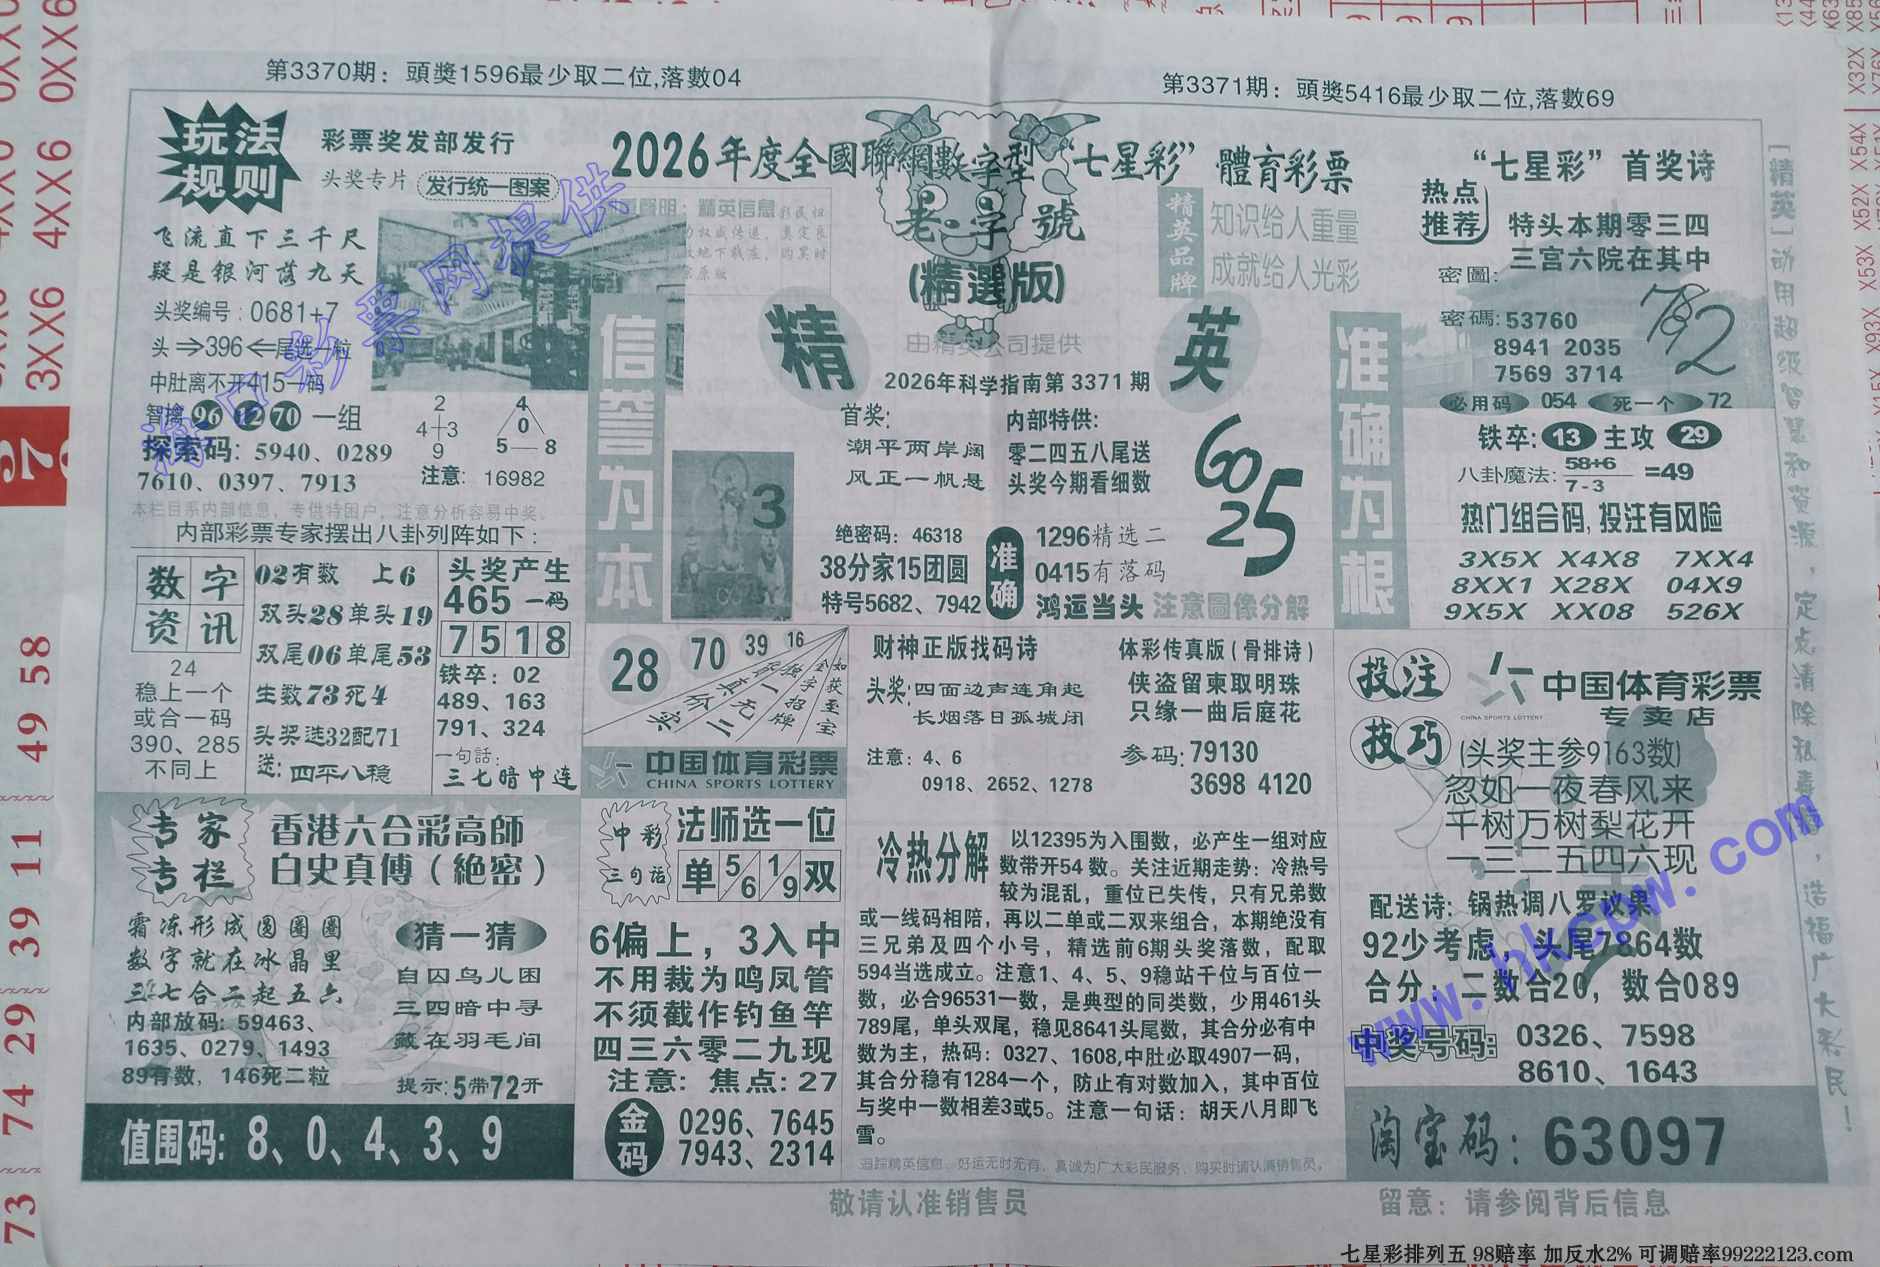 第3370期：頭獎1596最少取二位,落數04
第3371期：頭獎5416最少取二位,落數69
玩法
规则
彩票奖发部发行
头奖专片 发行统一图案
飞流直下三千尺
疑是银河落九天
头奖编号：0681+7
头⇒396⇐尾选一粒
中肚离不开415一码
智擒 96 12 70 一组
探索码：5940、0289
7610、0397、7913
2
4 3
9
4
0
5 8
注意：16982
本栏目系内部信息，专供特困户，注意分析容易中奖。
内部彩票专家摆出八卦列阵如下：
数字
资讯
24
稳上一个
或合一码
390、285
不同上
02有数 上6
双头28单头19
双尾06单尾53
生数73死4
头奖选32配71
送：四平八稳
头奖产生
465一码
7518
铁卒：02
489、163
791、324
一句話：
三七暗中连
专家
专栏
香港六合彩高師
白史真傳（絶密）
霜冻形成圆圈圈
数字就在冰晶里
三七合二起五六
内部放码：59463、
1635、0279、1493
89有数，146死二粒
猜一猜
自囚鸟儿困
三四暗中寻
藏在羽毛间
提示：5带72开
值围码：8、0、4、3、9
2026年度全國聯網數字型“七星彩”體育彩票
老字號
(精選版)
精英品牌
知识给人重量
成就给人光彩
信誉为本
精
英
由精英公司提供
2026年科学指南第3371期
准确为根
首奖：
潮平两岸阔
风正一帆悬
内部特供：
零二四五八尾送
头奖今期看细数
6025
3
绝密码：46318
38分家15团圆
特号5682、7942
准确
1296精选二
0415有落码
鸿运当头 注意圖像分解
28 70 39 16
实价
真二
一元
独字招牌
如获至宝
中国体育彩票
CHINA SPORTS LOTTERY
中彩
三句话
法师选一位
单 5/6 1/9 双
6偏上，3入中
不用裁为鸣凤管
不须截作钓鱼竿
四三六零二九现
注意：焦点：27
金码
0296、7645
7943、2314
财神正版找码诗
头奖：四面边声连角起
长烟落日孤城闭
注意：4、6
0918、2652、1278
体彩传真版（骨排诗）
侠盗留柬取明珠
只缘一曲后庭花
参码：79130
3698 4120
冷热分解
以12395为入围数，必产生一组对应
数带开54数。关注近期走势：冷热号
较为混乱，重位已失传，只有兄弟数
或一线码相陪，再以二单或二双来组合，本期绝没有
三兄弟及四个小号，精选前6期头奖落数，配取
594当选成立。注意1、4、5、9稳站千位与百位一
数，必合96531一数，是典型的同类数，少用461头
789尾，单头双尾，稳见8641头尾数，其合分必有中
数为主，热码：0327、1608,中肚必取4907一码，
其合分稳有1284一个，防止有对数加入，其中百位
与奖中一数相差3或5。注意一句话：胡天八月即飞
雪。
追踪精英信息，好运无时无有，真诚为广大彩民服务，购买时请认准销售员。
“七星彩”首奖诗
热点
推荐
特头本期零三四
三宫六院在其中
密圖：
密碼：53760
8941 2035
7569 3714
必用码 054 死一个 72
铁卒：13 主攻 29
八卦魔法：58+6/7-3=49
热门组合码,投注有风险
3X5X X4X8 7XX4
8XX1 X28X 04X9
9X5X XX08 526X
投注
技巧
中国体育彩票
CHINA SPORTS LOTTERY
专卖店
(头奖主参9163数)
忽如一夜春风来
千树万树梨花开
一三二五四六现
配送诗：锅热调八罗议果
92少考虑，头尾7864数
合分：二数合20，数合089
中奖号码：0326、7598
8610、1643
淘宝码：63097
敬请认准销售员
留意：请参阅背后信息
海口彩票网提供
www.hkcpw.com
七星彩排列五 98赔率 加反水2% 可调赔率99222123.com
73 74 29 39 11 49 58
3XX6 4XX6 0XX6